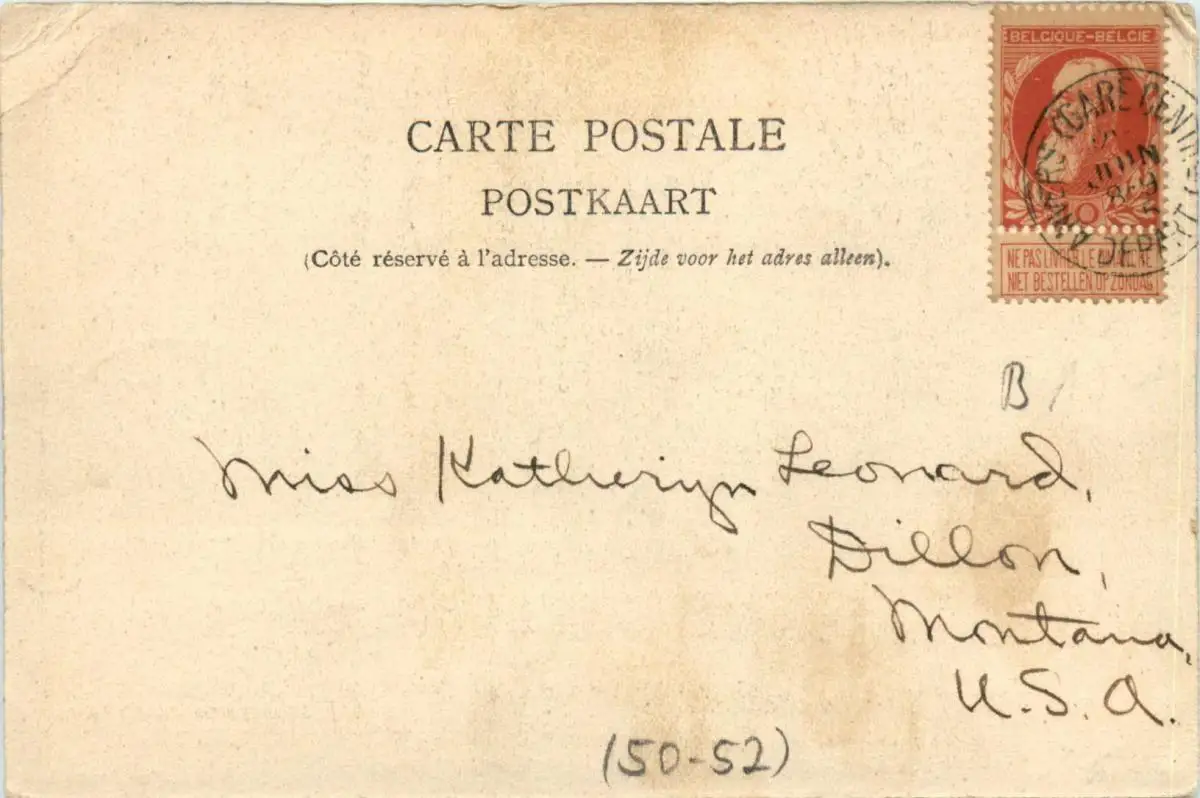 BELGIQUE-BELGIE
CARTE POSTALE
POSTKAART
(Côté réservé à l'adresse. — Zijde voor het adres alleen).
(GARE CENTRALE)
JUIN
8-9
DEPART
NE PAS LIVRER LE DIMANCHE
NIET BESTELLEN OP ZONDAG
B
Miss Katheryn Leonard,
Dillon,
Montana,
U.S.A.
(50-52)